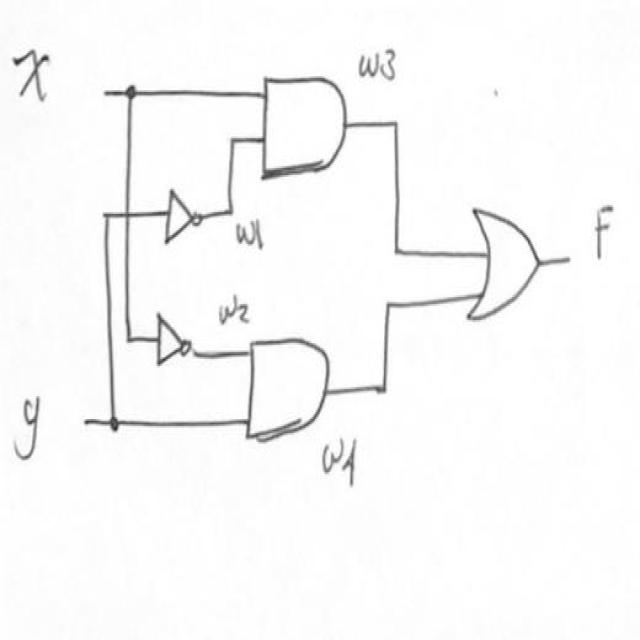 x
w3
w1
F
w2
y
w4